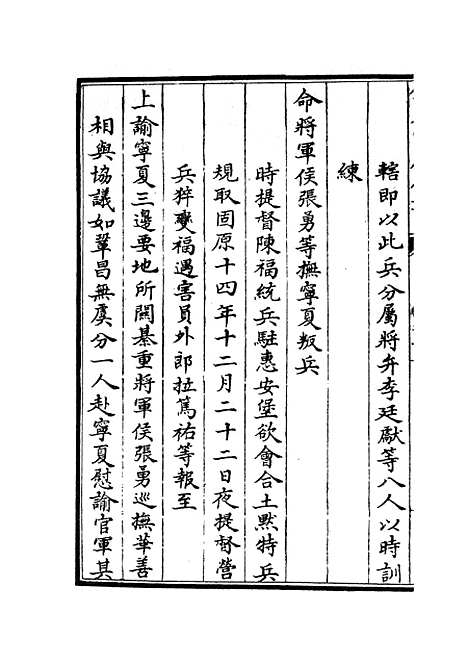 轄即以此兵分屬將弁李廷獻等八人以時訓
練
命將軍侯張勇等撫寧夏叛兵
時提督陳福統兵駐惠安堡欲會合土黙特兵
規取固原十四年十二月二十二日夜提督營
兵猝變福遇害員外郎拉篤祐等報至
上諭寧夏三邊要地所關綦重將軍侯張勇巡撫華善
相與協議如鞏昌無虞分一人赴寧夏慰諭官軍其